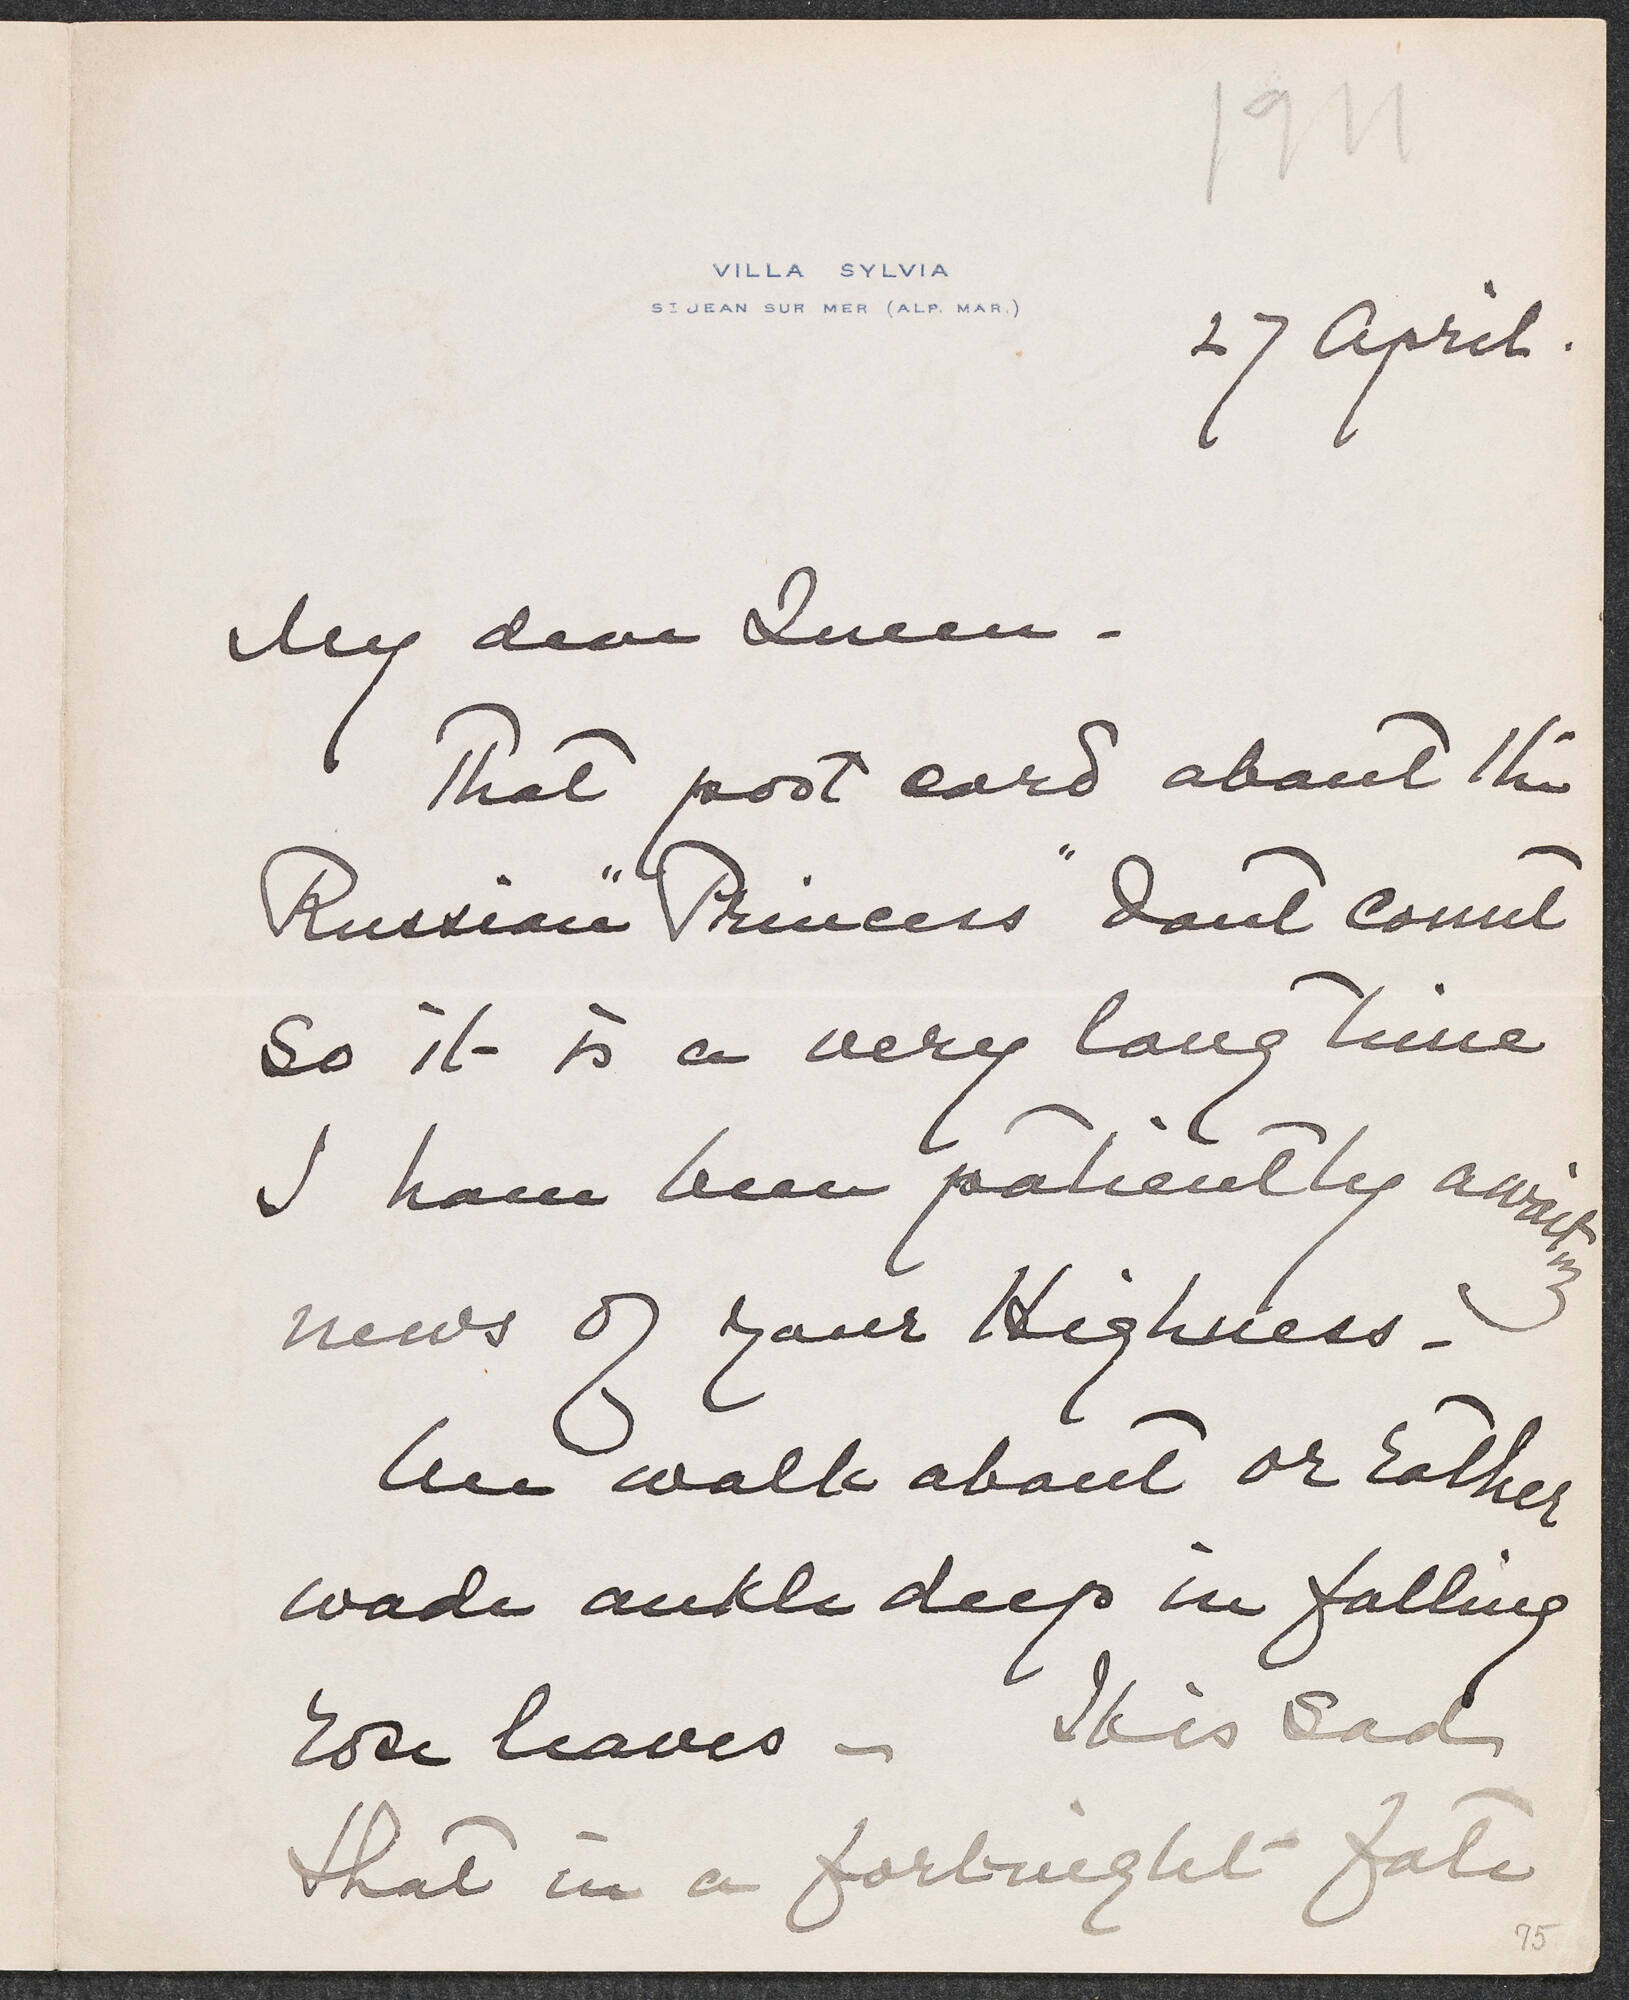 1911
VILLA SYLVIA
ST JEAN SUR MER (ALP. MAR.)
27 April.
My dear Queen -
That post card about the
Russian "Princess" dont count
So it is a very long time
I have been patiently awaiting
news of your Highness -
We walk about or rather
wade ankle deep in falling
rose leaves - It is sad
that in a fortnight fate
75